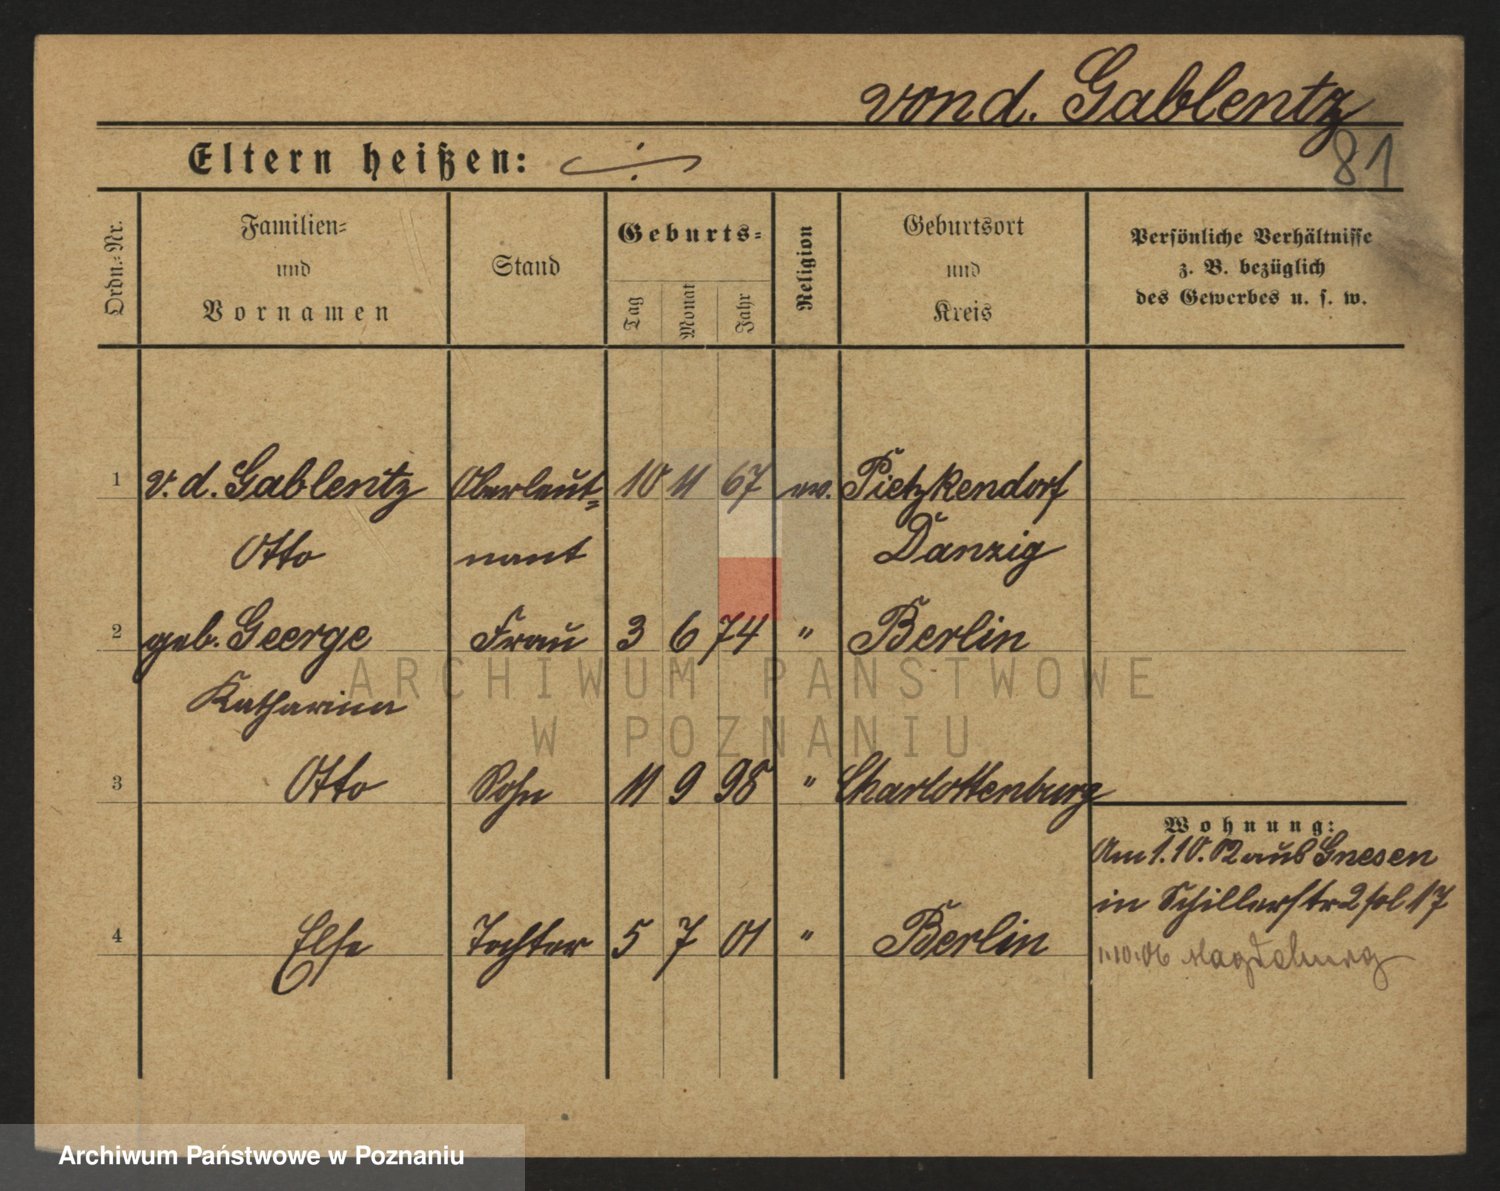 von d. Gablentz
81
Eltern heißen: ·/·
Ordn.-Nr.
Familien-
und
Vornamen
Stand
Geburts-
Tag
Monat
Jahr
Religion
Geburtsort
und
Kreis
Persönliche Verhältnisse
z. B. bezüglich
des Gewerbes u. s. w.
1 v. d. Gablentz Oberleut- 10 11 67 ev. Pietzkendorf
Otto nant Danzig
2 geb. Geerge Frau 3 6 74 " Berlin
Katharina
3 Otto Sohn 11 9 98 " Charlottenburg
Wohnung:
Am 1.10.02 aus Gnesen
in Schillerstr 2 17
4 Else Tochter 5 7 01 " Berlin
1.10.06 Magdeburg
ARCHIWUM PAŃSTWOWE
W POZNANIU
Archiwum Państwowe w Poznaniu